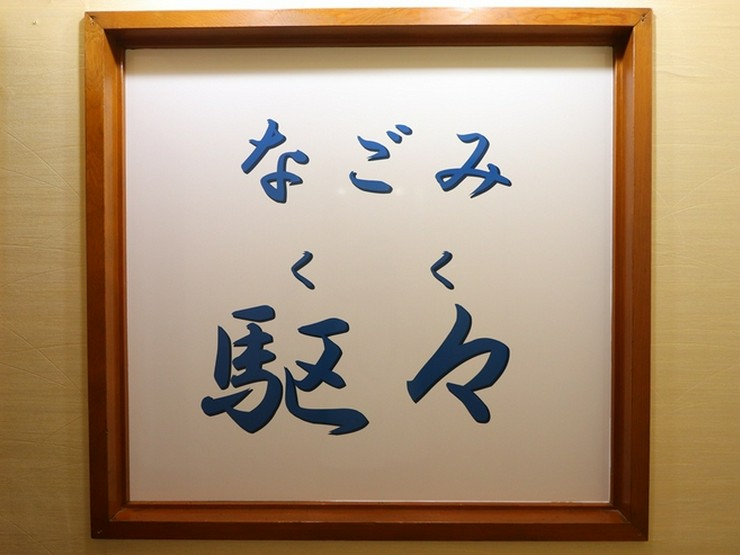 なごみ
くく
駆々